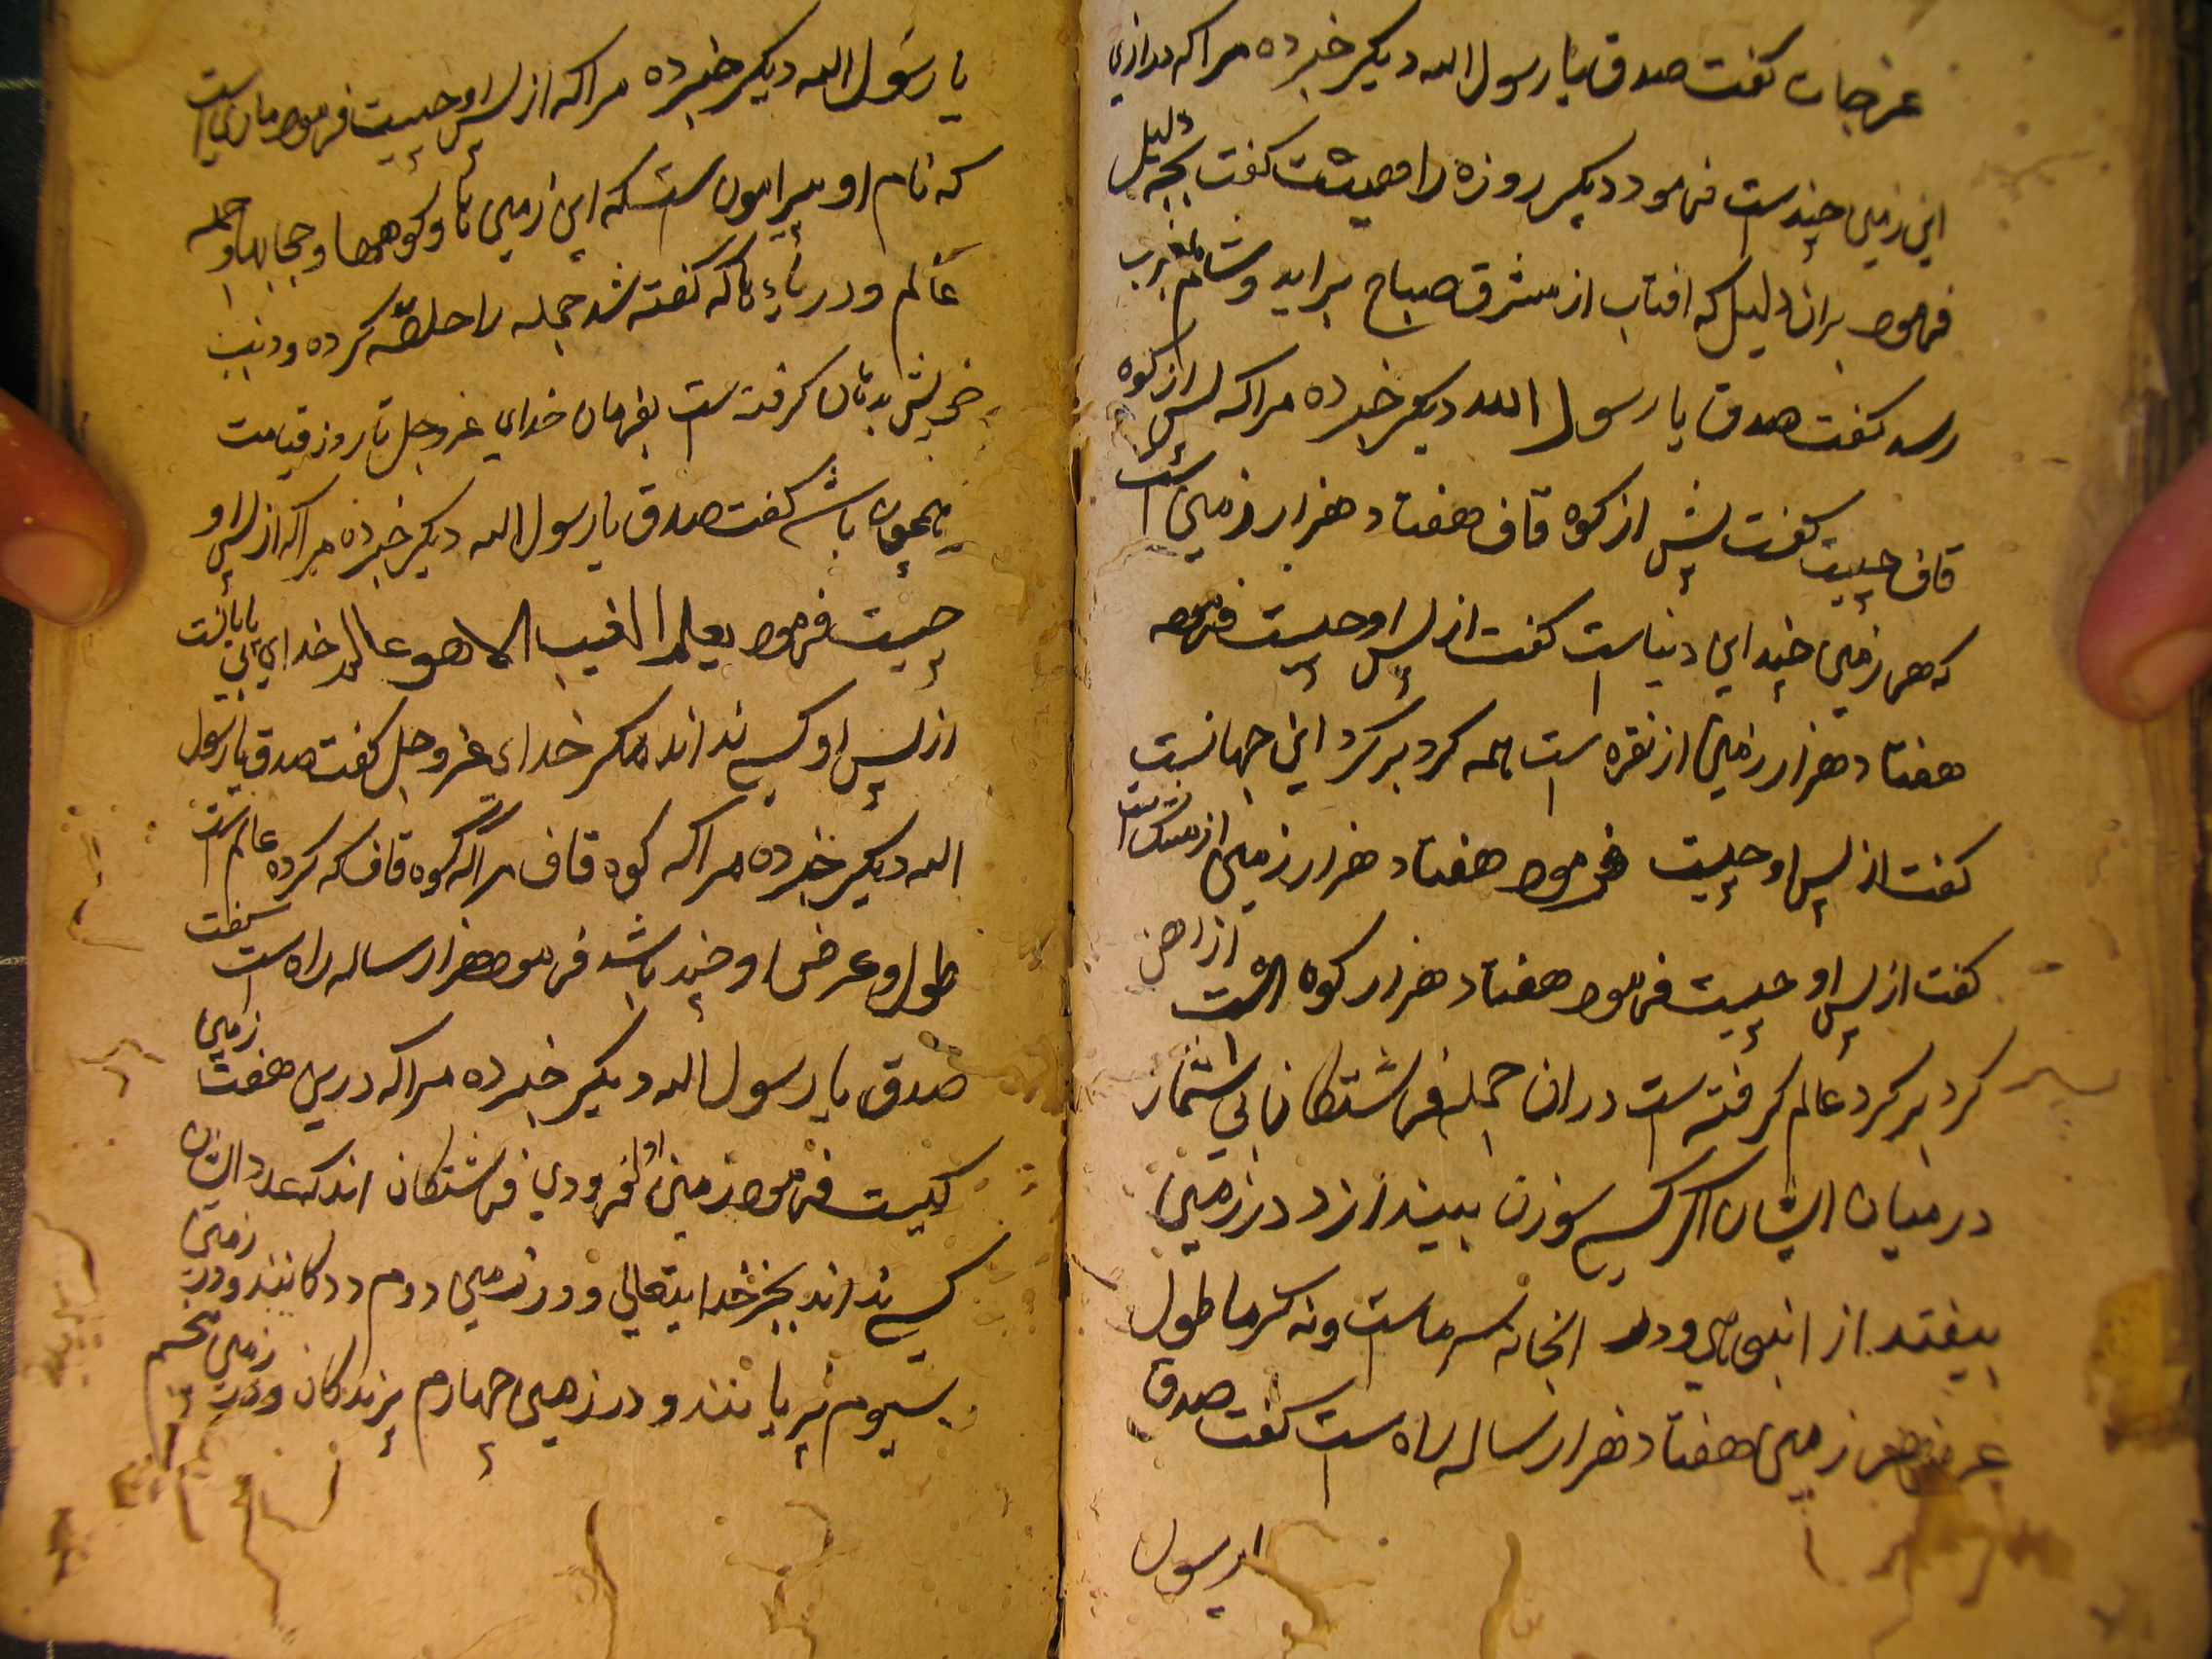 گفت صدق یا رسول الله دیکر خبر ده مرا که درازی
این زمین چندست فرمود دیکر روزه راه گفت بچه دلیل
فرمود بران دلیل که افتاب از مشرق صباح براید وشام بمغرب
رسد گفت صدق یا رسول الله دیکر خبر ده مرا که پس از کوه
قاف چیست گفت پس از کوه قاف هفتاد هزار زمین است
که هر زمین چند این دنیاست گفت از پس او چیست فرمود
هفتاد هزار زمین از نقره است همه کرد بر کرد این جهانست
گفت از پس او چیست فرمود هفتاد هزار زمین از مشک است
گفت از پس او چیست فرمود هفتاد هزار کوه است از اهن
کرد بر کرد عالم کرفته است در ان جمله فرشتکان بی شمار
در میان ایشان اکر کسی سوزن بیندازد در زمین
بیفتد از انبوهی ودر انجا نه سرماست ونه کرما طول
عرض هر زمین هفتاد هزار ساله راه است گفت صدق
یا رسول
یا رسول الله دیکر خبر ده مرا که از پس او چیست فرمود ماری است
که نام او است که این زمین ها و کوهها و حجابها و جمله
عالم ودریاء ها که گفته شد جمله را حلقه کرده ودنب
خویش بدهان کرفته است بفرمان خدای عزوجل تا روز قیامت
همچون باشد گفت صدق یا رسول الله دیکر خبر ده مرا که از پس او
چیست فرمود یعلم الغیب الا هو عالم خدای
از پس او کسی نداند مکر خدای عزوجل گفت صدق یا رسول
الله دیکر خبر ده مرا که کوه قاف مرا که کوه قاف که کرده عالم است
طول و عرض او چند باشد فرمود هزار ساله راه است گفت
صدق یا رسول الله دیکر خبر ده مرا که درین هفت زمین
کیست فرمود زمین اول فرودی فرشتکان اند که عدد ایشان
کسی نداند بجز خدایتعالی ودر زمین دوم ددکانند ودر زمین
سیوم پریانند و در زمین چهارم پرندکان ودر زمین پنجم